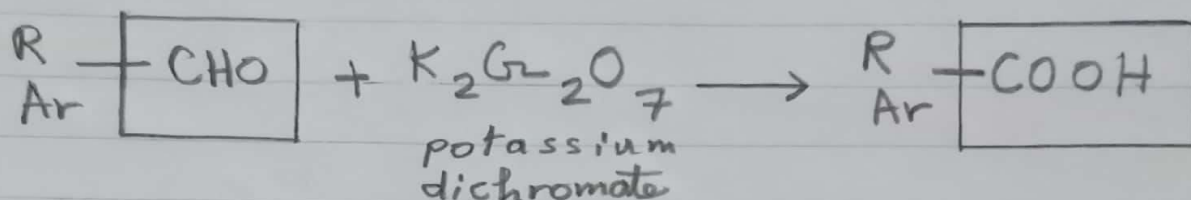 R
Ar —CHO + K₂Cr₂O₇ ⟶ R
Ar —COOH
potassium
dichromate